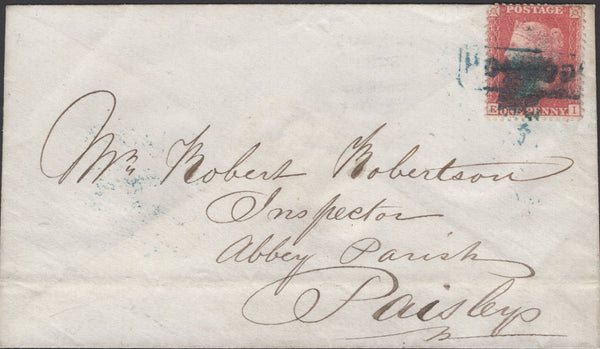 POSTAGE
E ONE PENNY I
Mr. Robert Robertson
Inspector
Abbey Parish
Paisley